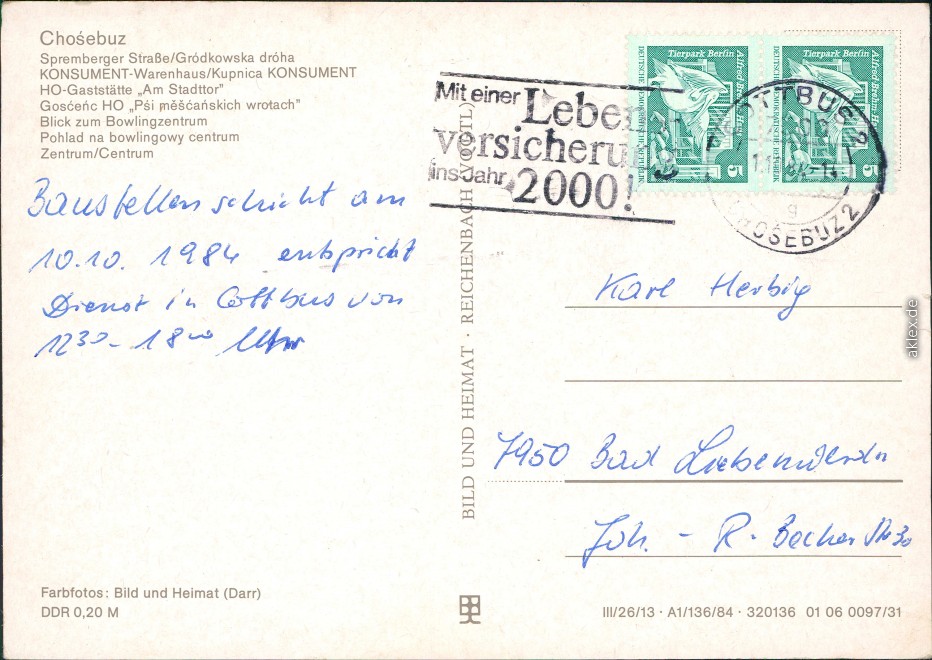 Chośebuz
Spremberger Straße/Gródkowska dróha
KONSUMENT-Warenhaus/Kupnica KONSUMENT
HO-Gaststätte „Am Stadttor"
Gosćeńc HO „Pśi měšćańskich wrotach"
Blick zum Bowlingzentrum
Pohlad na bowlingowy centrum
Zentrum/Centrum
Baustellenschicht am
10.10. 1984 entspricht
Dienst in Cottbus von
12³⁰ - 18⁰⁰ Uhr
Farbfotos: Bild und Heimat (Darr)
DDR 0,20 M
BILD UND HEIMAT · REICHENBACH (VOGTL)
Mit einer Leben
versicheru
ins Jahr 2000!
Tierpark Berlin
Alfred Brehm Haus
DEUTSCHE DEMOKRATISCHE REPUBLIK
5
Tierpark Berlin
Alfred Brehm
DEUTSCHE DEMOKRATISCHE REPUBLIK
5
COTTBUS 2
g
CHOŚEBUZ 2
Karl Herbig
7950 Bad Liebenwerda
Joh. - R. Becher Str 30
III/26/13 · A1/136/84 · 320136 01 06 0097/31
aklex.de